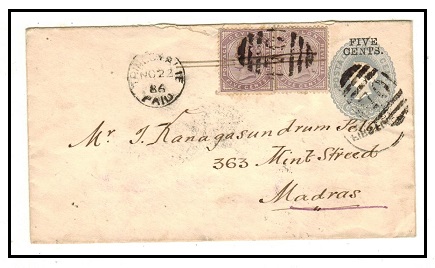 FIVE
CENTS.
NO 22
86
PAID
Mr. T. Kanagasundrum
363 Mint Streed
Madras